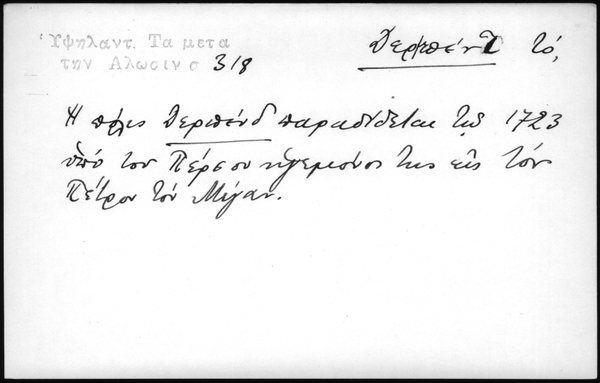 Ὑψηλαντ. Τα μετα
την Αλωσιν σ 318
Δερμπέντ τό,
Η πόλις Δερπένδ παραδίδεται τῷ 1723
ὑπό του Πέρσου ηγεμόνος της εἰς τόν
Πέτρον τόν Μέγαν.